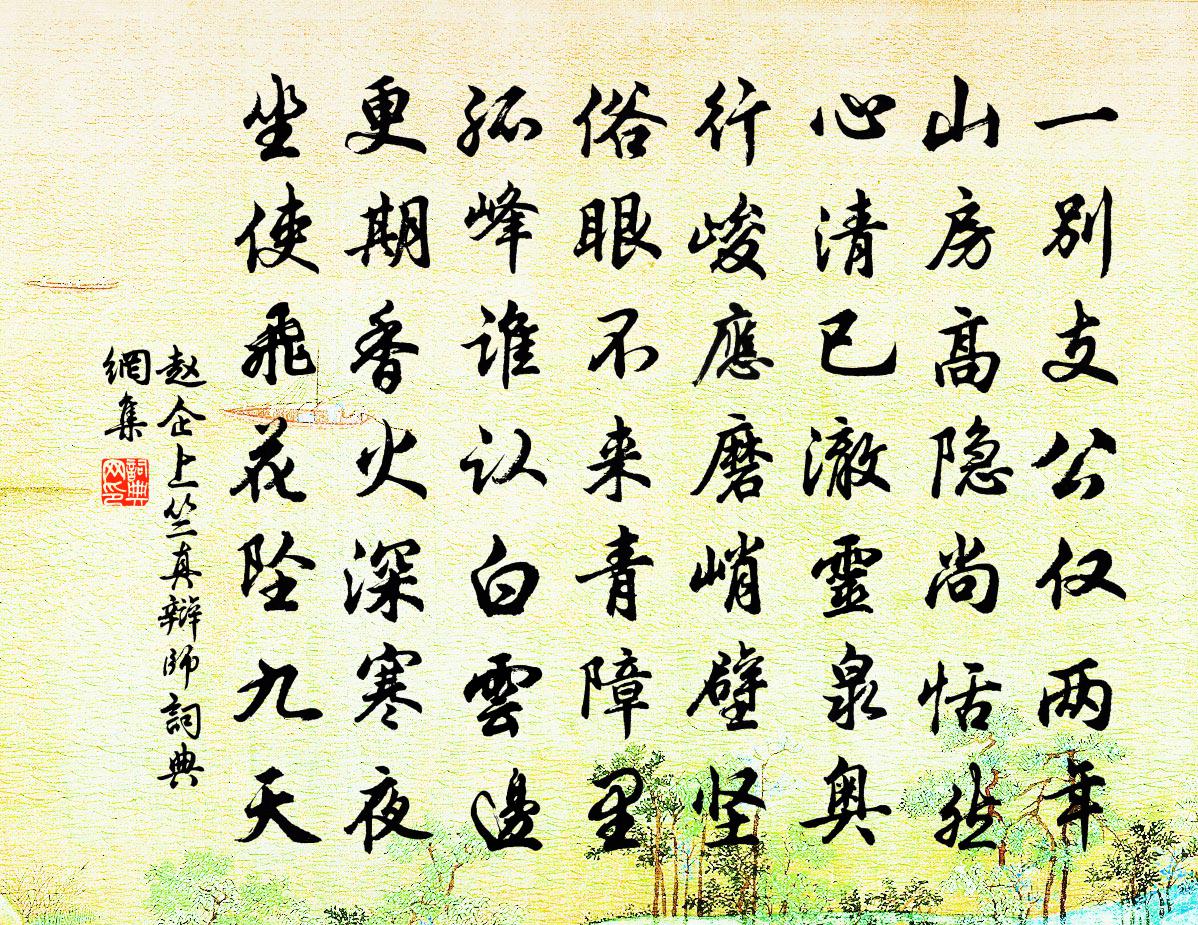 一别支公仅两年
山房高隐尚恬然
心清已澈靈泉奥
行峻應磨峭壁坚
俗眼不来青障里
孤峰谁认白雲邊
更期香火深寒夜
坐使飛花坠九天
赵企上竺真辩師詞典
網集
詞典
网印